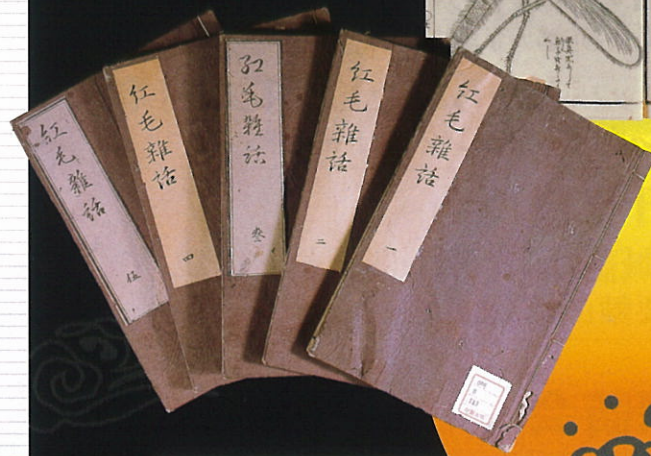 紅毛雜話 一
紅毛雜話 二
紅毛雜話 叁
紅毛雜話 四
紅毛雜話 伍